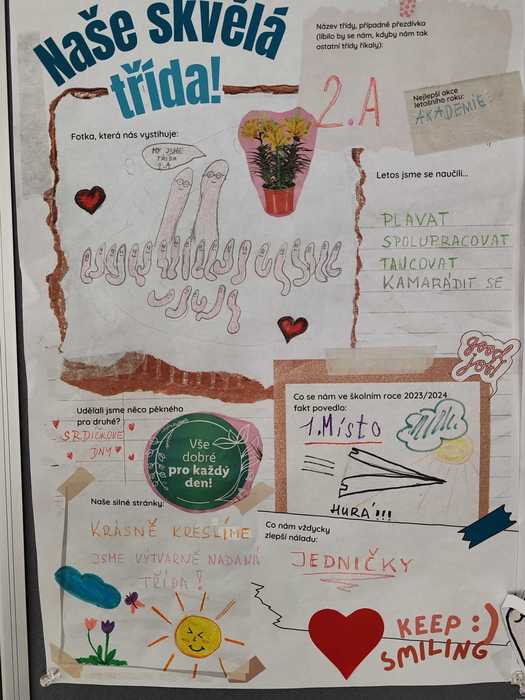 Naše skvělá
třída!
Název třídy, případně přezdívka
(líbilo by se nám, kdyby nám tak
ostatní třídy říkaly):
2.A
Nejlepší akce
letošního roku:
AKADEMIE
Fotka, která nás vystihuje:
MY JSME
TŘÍDA
2.A
Letos jsme se naučili...
PLAVAT
SPOLUPRACOVAT
TANCOVAT
KAMARÁDIT SE
good
job!
Udělali jsme něco pěkného
pro druhé?
SRDÍČKOVÉ
DNY
Vše
dobré
pro každý
den!
Co se nám ve školním roce 2023/2024
fakt povedlo:
1. Místo
HURÁ!!!
Naše silné stránky:
KRÁSNĚ KRESLÍME
JSME VÝTVARNĚ NADANÁ
TŘÍDA!
Co nám vždycky
zlepší náladu:
JEDNIČKY
KEEP :)
SMILING